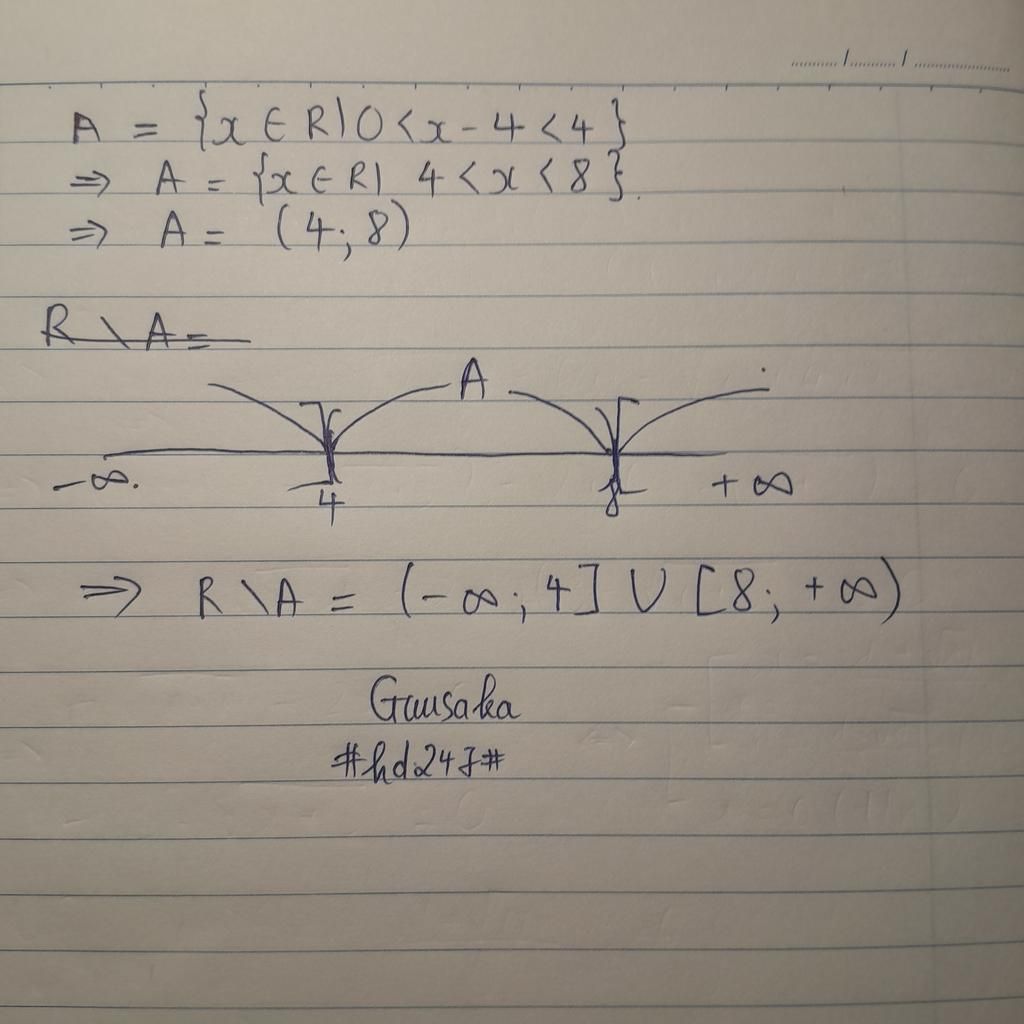 A = {x ∈ R | 0 < x - 4 < 4}
⇒ A = {x ∈ R | 4 < x < 8}.
⇒ A = (4; 8)
R \ A =
A
-∞. 4 8 +∞
⇒ R \ A = (-∞; 4] ∪ [8; +∞)
#hd247#